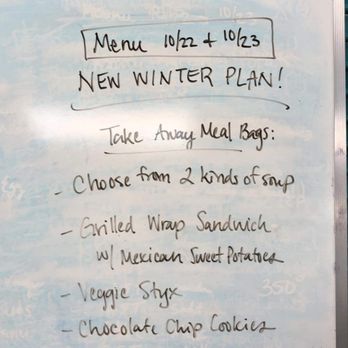 Menu 10/22 + 10/23
NEW WINTER PLAN!
Take Away Meal Bags:
- Choose from 2 kinds of soup
- Grilled Wrap Sandwich
w/ Mexican Sweet Potatoes
- Veggie Styx
- Chocolate Chip Cookies